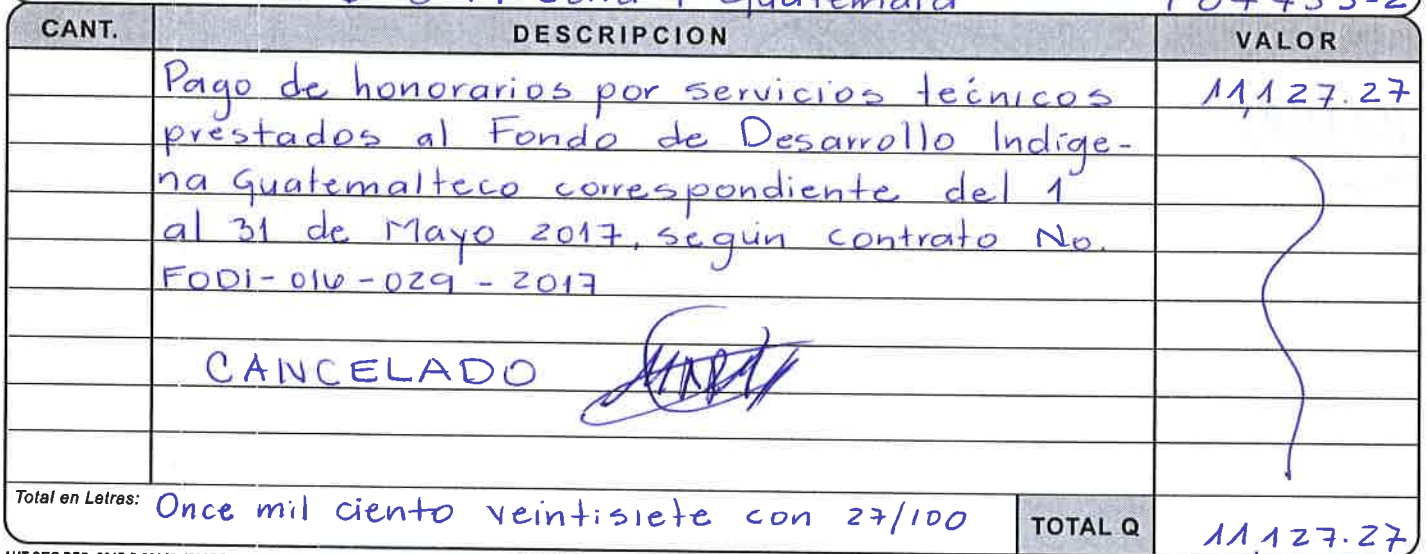 Guatemala
CANT. DESCRIPCION VALOR
Pago de honorarios por servicios técnicos 11,127.27
prestados al Fondo de Desarrollo Indige-
na Guatemalteco correspondiente del 1
al 31 de Mayo 2017, según contrato No.
FODI-016-029-2017
CANCELADO
Total en Letras: Once mil ciento veintisiete con 27/100 TOTAL Q 11,127.27